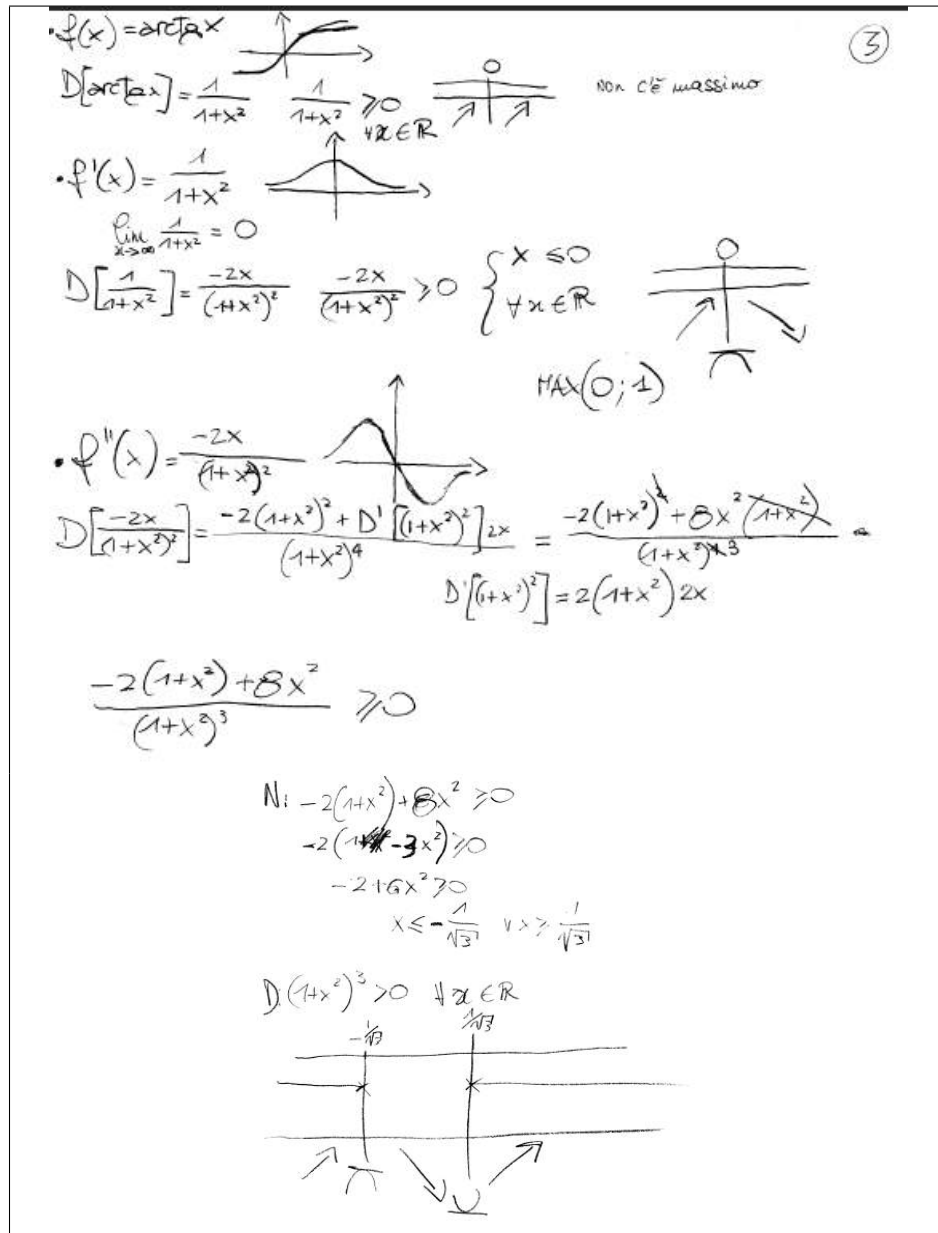 ③
• f(x) = arctg x
D[arctg x] = 1/(1+x²)   1/(1+x²) ⩾ 0 ∀x∈ℝ   0   Non c'è massimo
• f'(x) = 1/(1+x²)
lim x→∞ 1/(1+x²) = 0
D[1/(1+x²)] = -2x/(1+x²)²   -2x/(1+x²)² ⩾ 0   { x ⩽ 0   ∀x∈ℝ   0
MAX(0;1)
• f''(x) = -2x/(1+x²)²
D[-2x/(1+x²)²] = (-2(1+x²)² + D'[(1+x²)²]2x)/(1+x²)⁴ = (-2(1+x²)² + 8x²(1+x²))/(1+x²)⁴ ³ =
D'[(1+x²)²] = 2(1+x²)2x
(-2(1+x²)+8x²)/(1+x²)³ ⩾ 0
N: -2(1+x²)+8x² ⩾ 0
-2(1 -3x²) ⩾ 0
-2+6x² ⩾ 0
x ⩽ -1/√3 ∨ x ⩾ 1/√3
D: (1+x²)³ > 0 ∀x∈ℝ
-1/√3   1/√3